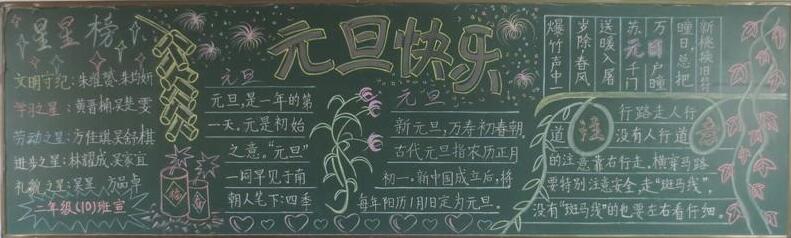 星星榜
文明守纪：朱维赞、朱均妍
学习之星：黄晋楠、吴斐雯
劳动之星：方佳琪、吴舒棋
进步之星：林耀成、吴家宜
礼貌之星：吴昊、方品卓
二年级（10）班宣
元旦快乐
元旦
元旦，是一年的第
一天。元是初始
之意。“元旦”
一词早见于南
朝人笔下：四季
元旦
新元旦，万寿初春朝。
古代元旦指农历正月
初一。新中国成立后，将
每年阳历1月1日定为元旦。
爆竹声中一
岁除，春风
送暖入屠
苏。千门
万户曈
曈日，总把
新桃换旧符
注意
行路走人行
道，没有人行道
的注意靠右行走，横穿马路
要特别注意安全，走“斑马线”。
没有“斑马线”的也要左右看仔细。